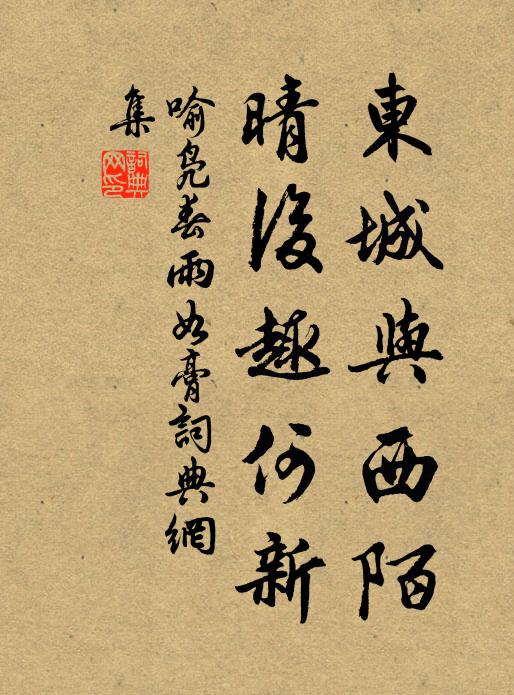 東城與西陌
晴後趣何新
喻鳧春雨如膏詞典網
集
詞典網印